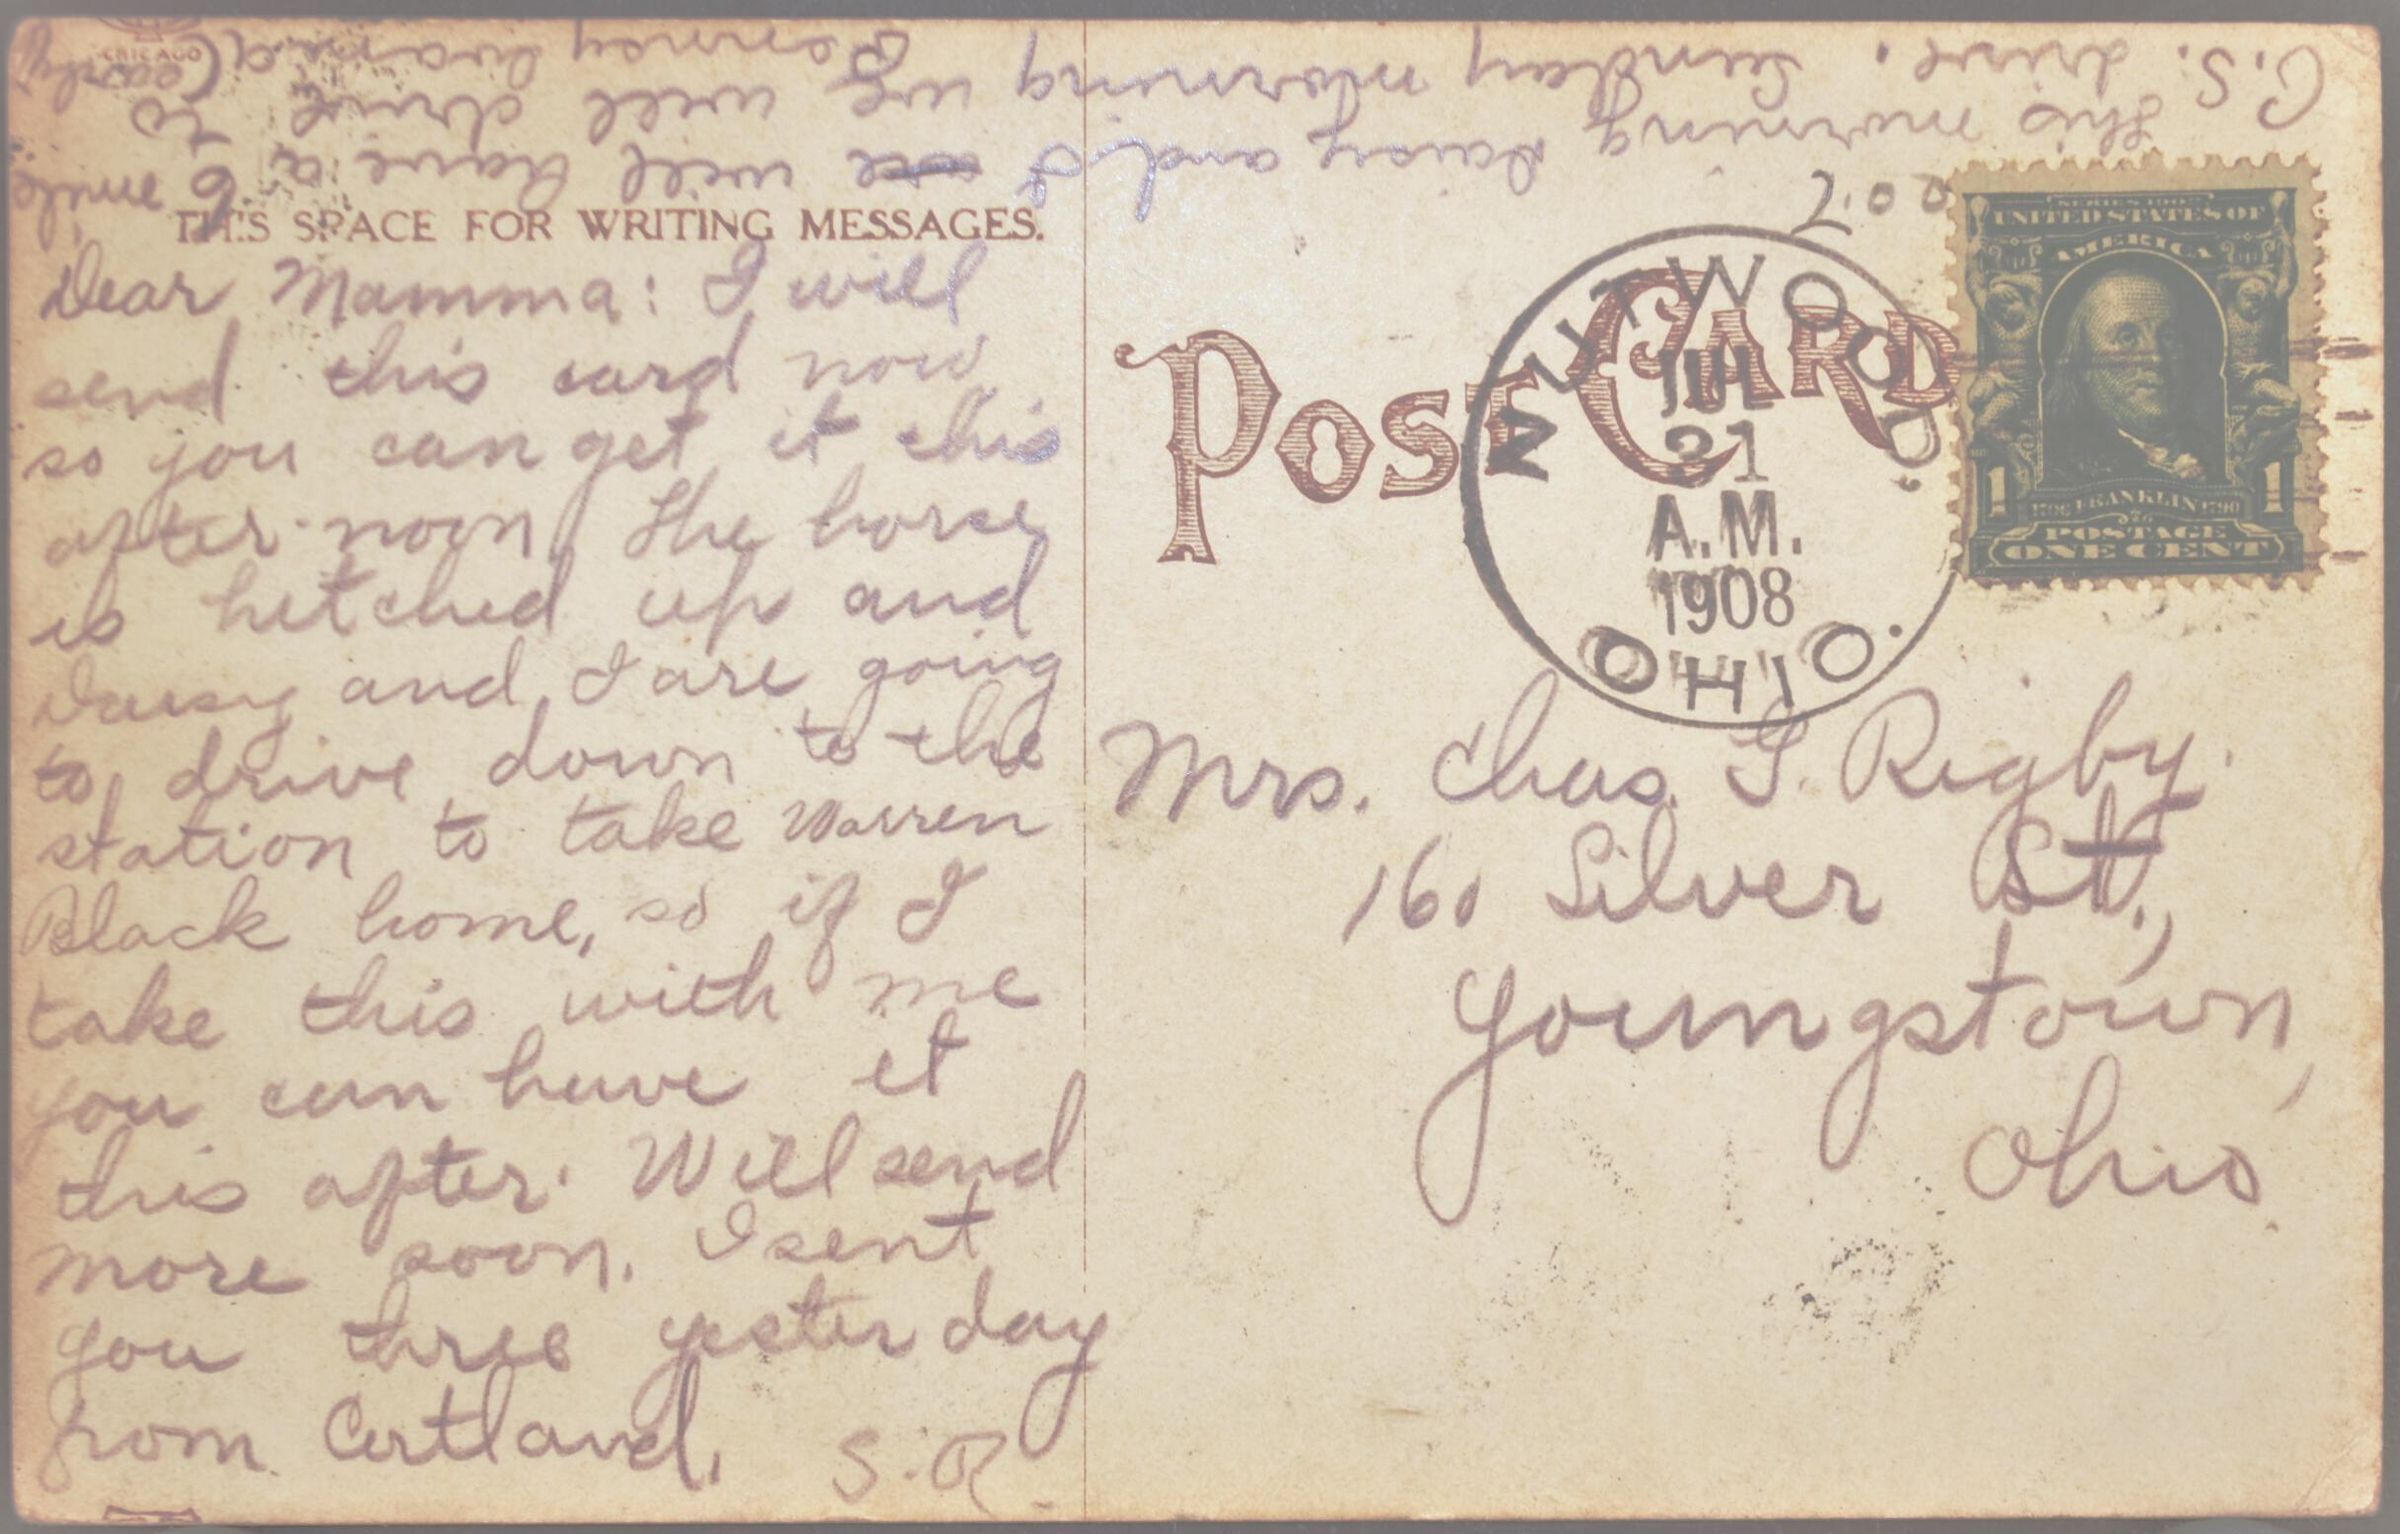 CHICAGO
THIS SPACE FOR WRITING MESSAGES.
Dear Mamma: I will
send this card now
so you can get it this
after-noon. The horse
is hitched up and
Daisy and I are going
to drive down to the
station to take Warren
Black home, so if I
take this with me
you can have it
this after. Will send
more soon. I sent
you three yesterday
from Cortland.
S.R.
P.S. this morning Daisy and I will have a 6 mile
drive. Sunday morning we will drive to
(early
POST CARD
NUTWOOD.
JUL
31
A.M.
1908
OHIO.
SERIES 1902
UNITED STATES OF
AMERICA
1 1
1706 FRANKLIN 1790
POSTAGE
ONE CENT
Mrs. Chas. G. Rigby.
160 Silver St.,
Youngstown,
Ohio